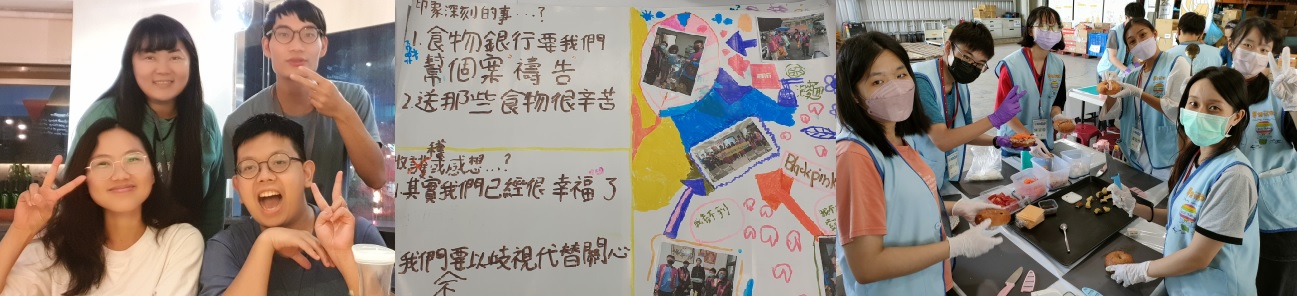 印象深刻的事...?
1. 食物銀行要我們
幫個案禱告
2. 送那些食物很辛苦
收穫或感想...?
1. 其實我們已經很幸福了
我們不要以歧視代替關心
Blackpink